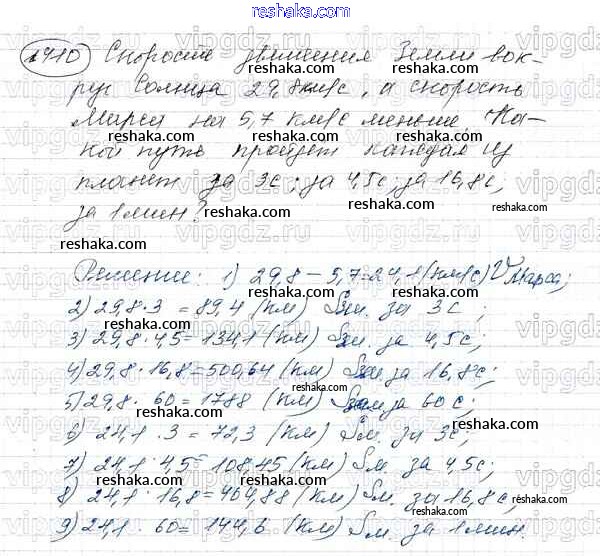 reshaka.com
1410 Скорость движения Земли вок-
руг Солнца 29,8 км/с, а скорость
Марса на 5,7 км/с меньше. Ка-
кой путь пройдет каждая из
планет за 3с; за 4,5с; за 16,8с;
за 1 мин?
Решение: 1) 29,8 - 5,7 = 24,1 (км/с) V Марса;
2) 29,8 · 3 = 89,4 (км) Sзм. за 3с;
3) 29,8 · 4,5 = 134,1 (км) Sзм. за 4,5с;
4) 29,8 · 16,8 = 500,64 (км) Sзм за 16,8с;
5) 29,8 · 60 = 1788 (км) Sзем за 60с;
6) 24,1 · 3 = 72,3 (км) Sм. за 3с;
7) 24,1 · 4,5 = 108,45 (км) Sм. за 4,5с;
8) 24,1 · 16,8 = 464,88 (км) Sм. за 16,8с;
9) 24,1 · 60 = 144,6 (км) Sм. за 1 мин.